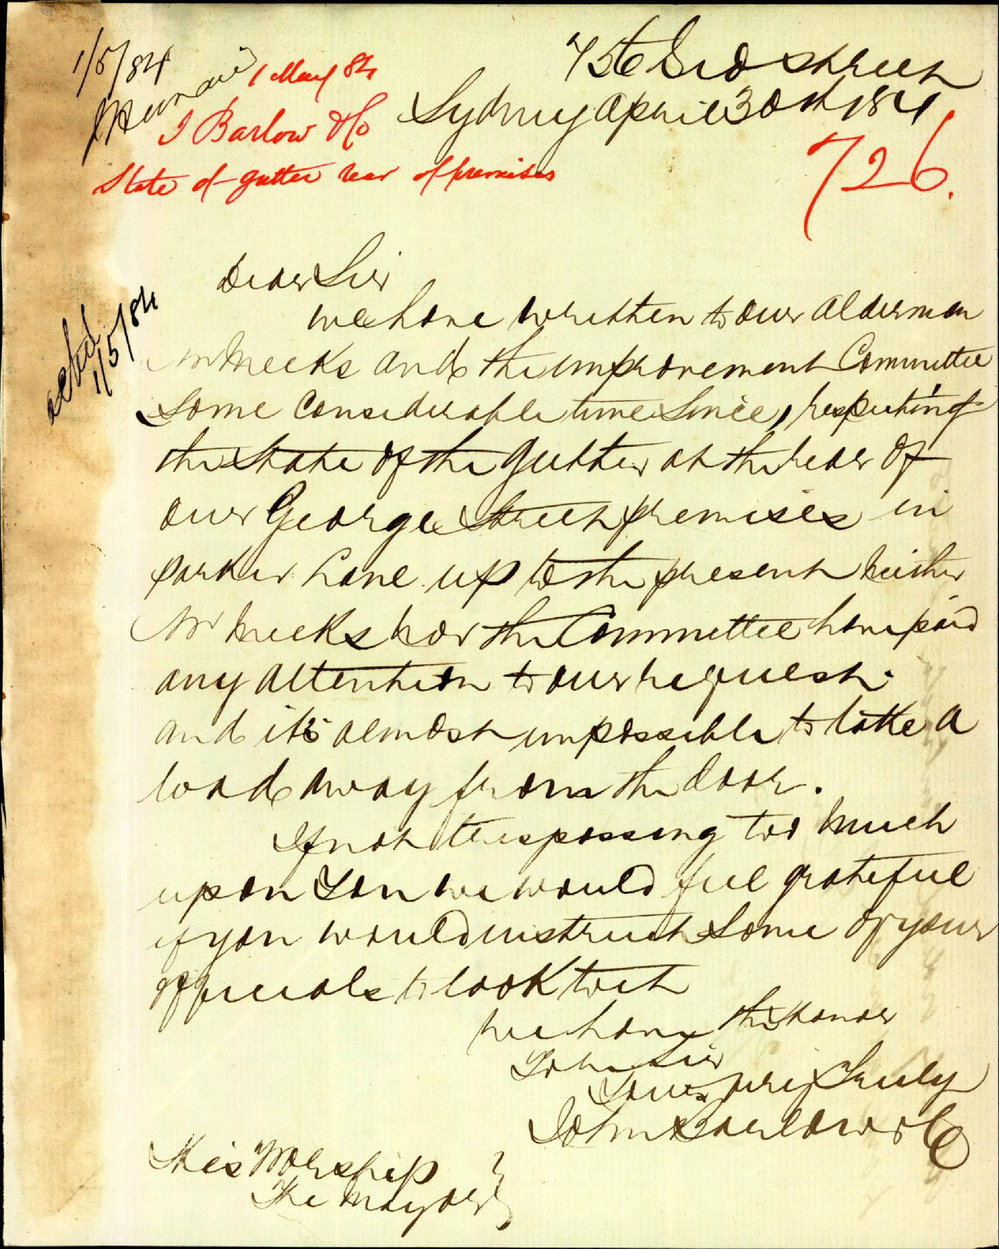 1/5/84
1 May 84
J Barlow & Co
State of gutter rear of premises
756 Geo Street
Sydney April 30th 1884
726.
Dear Sir
We have written to our alderman
Mr Meeks and the improvement Committee
Some Considerable time Since, respecting
the State of the Gutter at the rear of
our George Street premises in
Parker Lane up to the present neither
Mr Meeks nor the Committee have paid
any attention to our request.
and it is almost impossible to take a
load away from the door.
If not trespassing too much
upon You we would feel grateful
if you would instruct Some of your
officials to look to it
We have the Honor
To be Sir
Yours very Truly
John Barlow & Co
1/5/84
His Worship
The Mayor